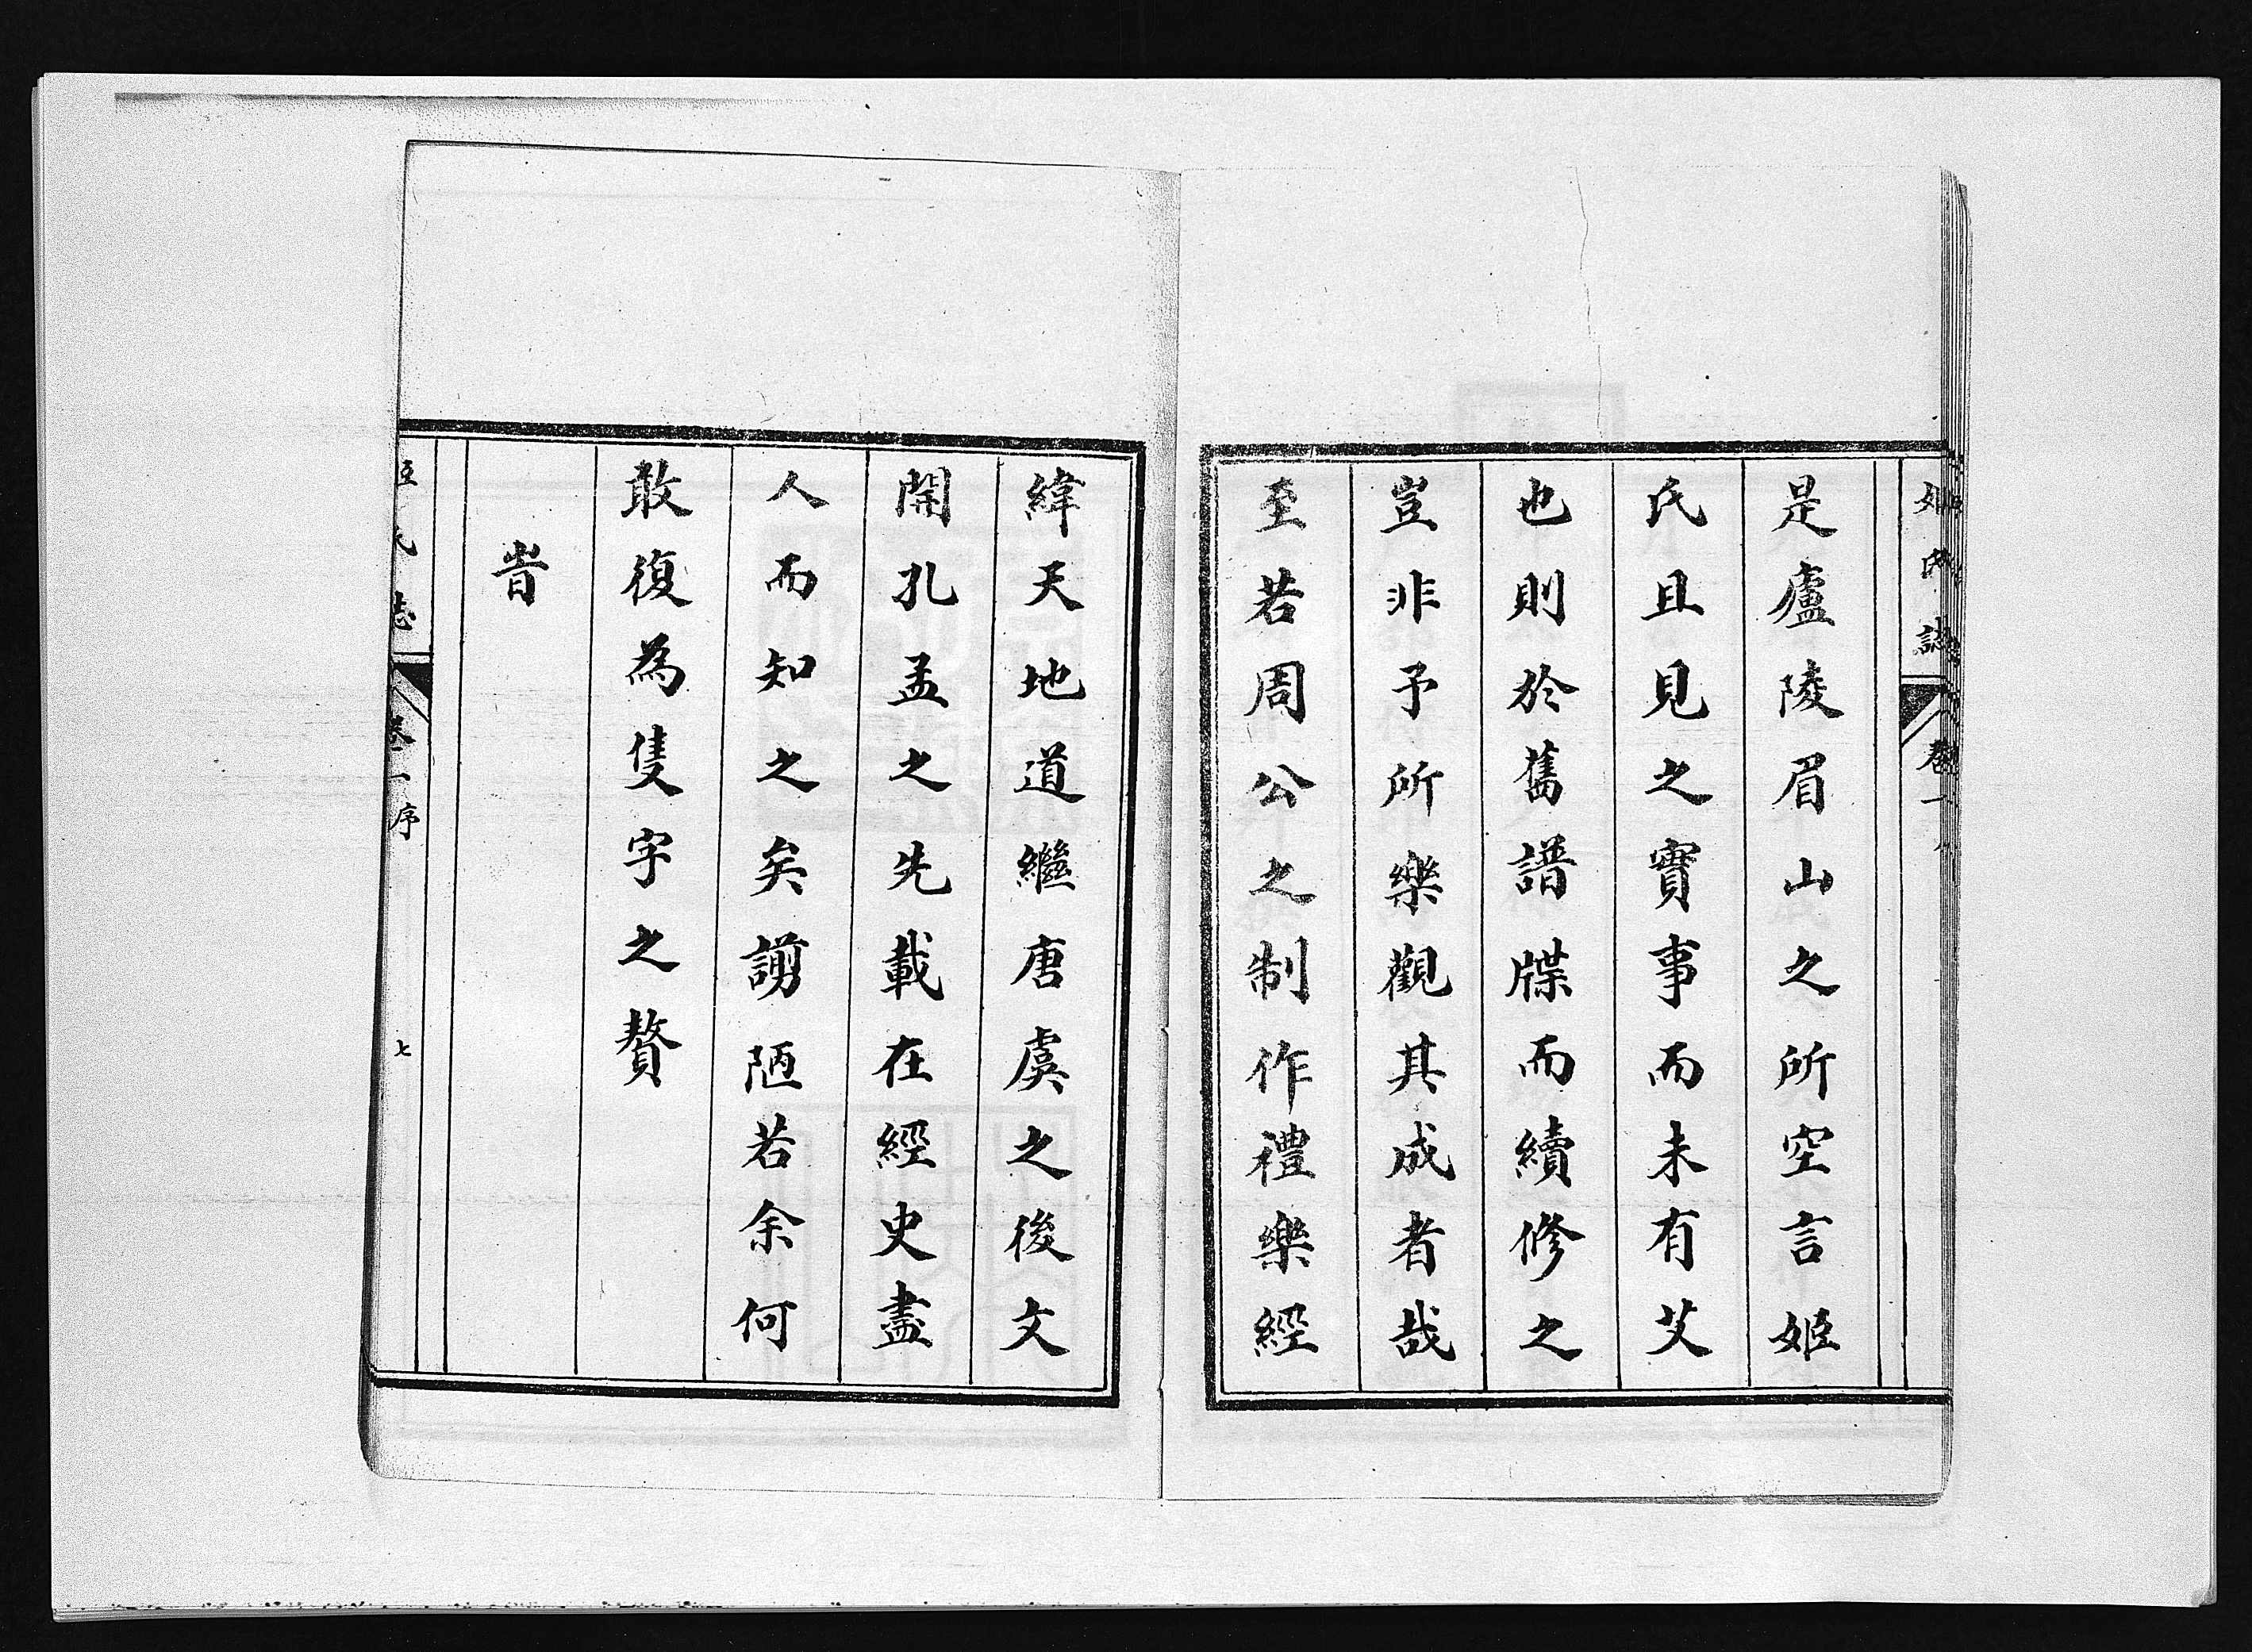 姬氏誌 卷一
是廬陵眉山之所空言姬
氏且見之實事而未有艾
也則於舊譜牒而續修之
豈非予所樂觀其成者哉
至若周公之制作禮樂經
緯天地道繼唐虞之後文
開孔孟之先載在經史盡
人而知之矣謭陋若余何
敢復為隻字之贅
旹
姬氏誌 卷一序 七